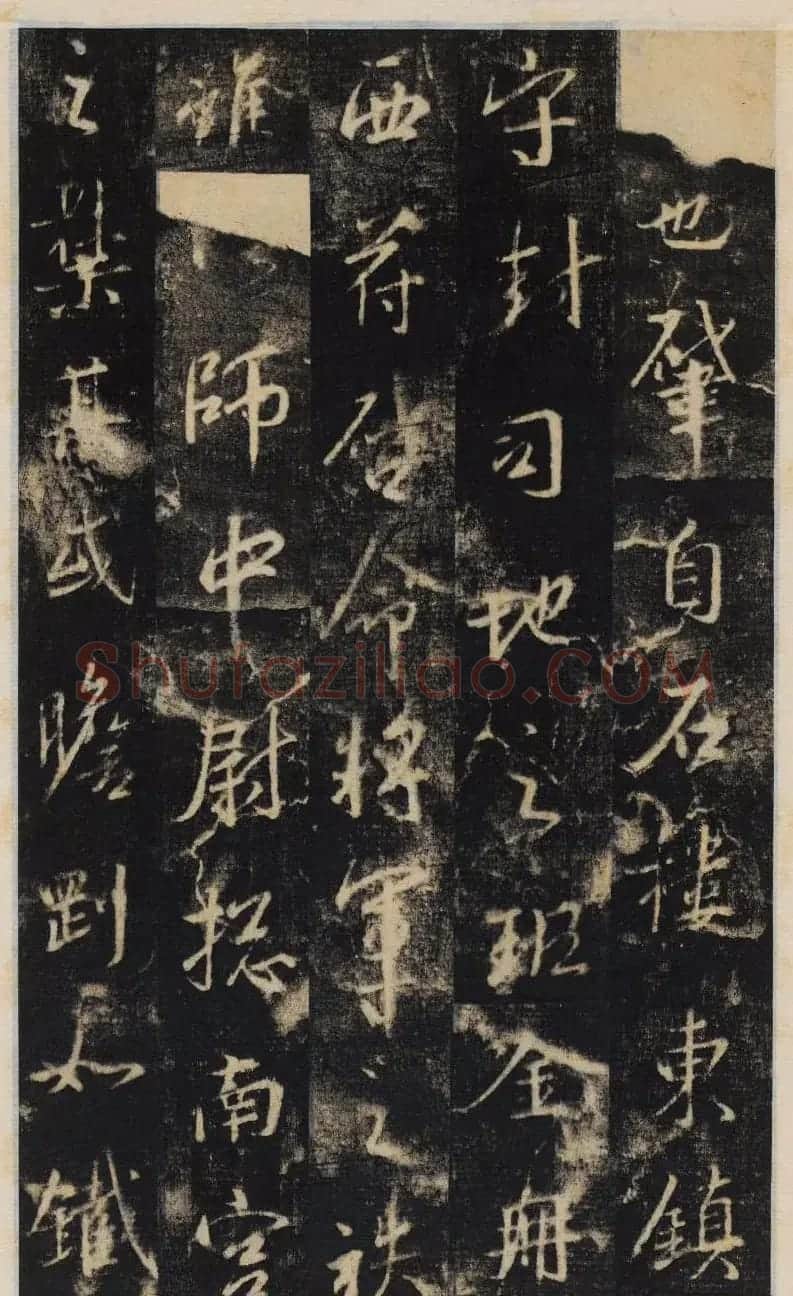 也肇自石樓東鎮
守封司地之班金冊
西符啓命將軍之秩
雖師中尉揔南宮
之業其或膽剛如鐵
Shufaziliao.COM